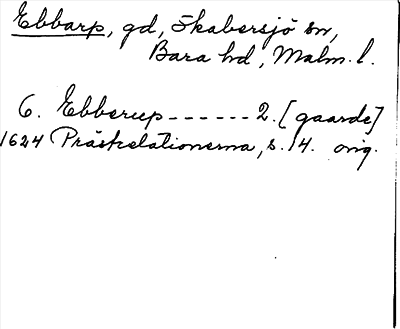 Ebbarp, gd, Skabersjö sn,
Bara hd, Malm. l.
6. Ebberup------2. [gaarde]
1624 Prästrelationerna, s. 14. orig.